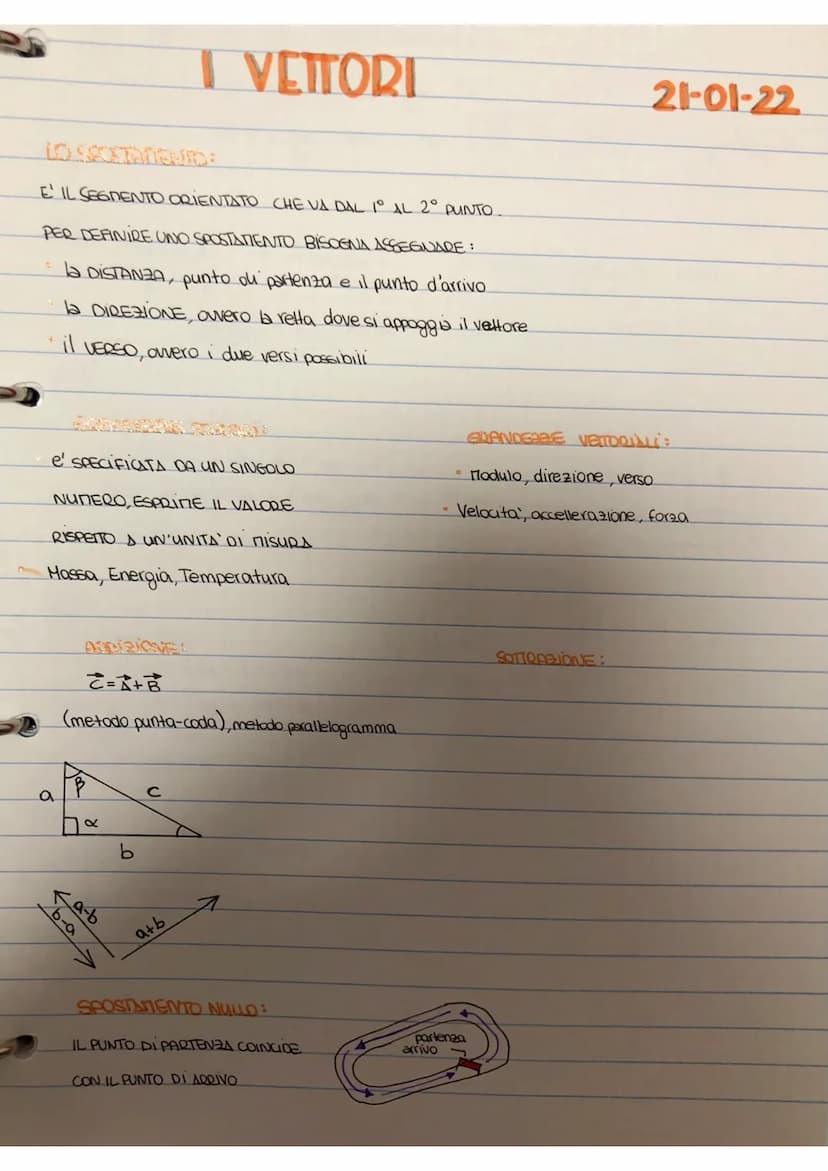 I VETTORI
21-01-22
LO SPOSTAMENTO:
E' IL SEGMENTO ORIENTATO CHE VA DAL 1° AL 2° PUNTO.
PER DEFINIRE UNO SPOSTAMENTO BISOGNA ASSEGNARE:
• la DISTANZA, punto di partenza e il punto d'arrivo
• la DIREZIONE, ovvero la retta dove si appoggia il vettore
• il VERSO, ovvero i due versi possibili
GRANDEZZE VETTORIALI:
e' SPECIFICATA DA UN SINGOLO
NUMERO, ESPRIME IL VALORE
RISPETTO A UN'UNITA' DI MISURA
Massa, Energia, Temperatura
• Modulo, direzione, verso
• Velocita', accellerazione, forza
ADDIZIONE:
SOTTRAZIONE:
C⃗ = A⃗ + B⃗
(metodo punta-coda), metodo parallelogramma
β
a
c
α
b
a-b
b-a
a+b
SPOSTAMENTO NULLO:
IL PUNTO DI PARTENZA COINCIDE
CON IL PUNTO DI ARRIVO
partenza
arrivo